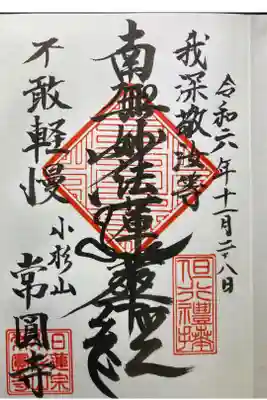 令和六年十一月二十八日
我深敬汝等
南無妙法蓮華経
不敢軽慢
小杉山
常圓寺
但行禮拝
日蓮宗